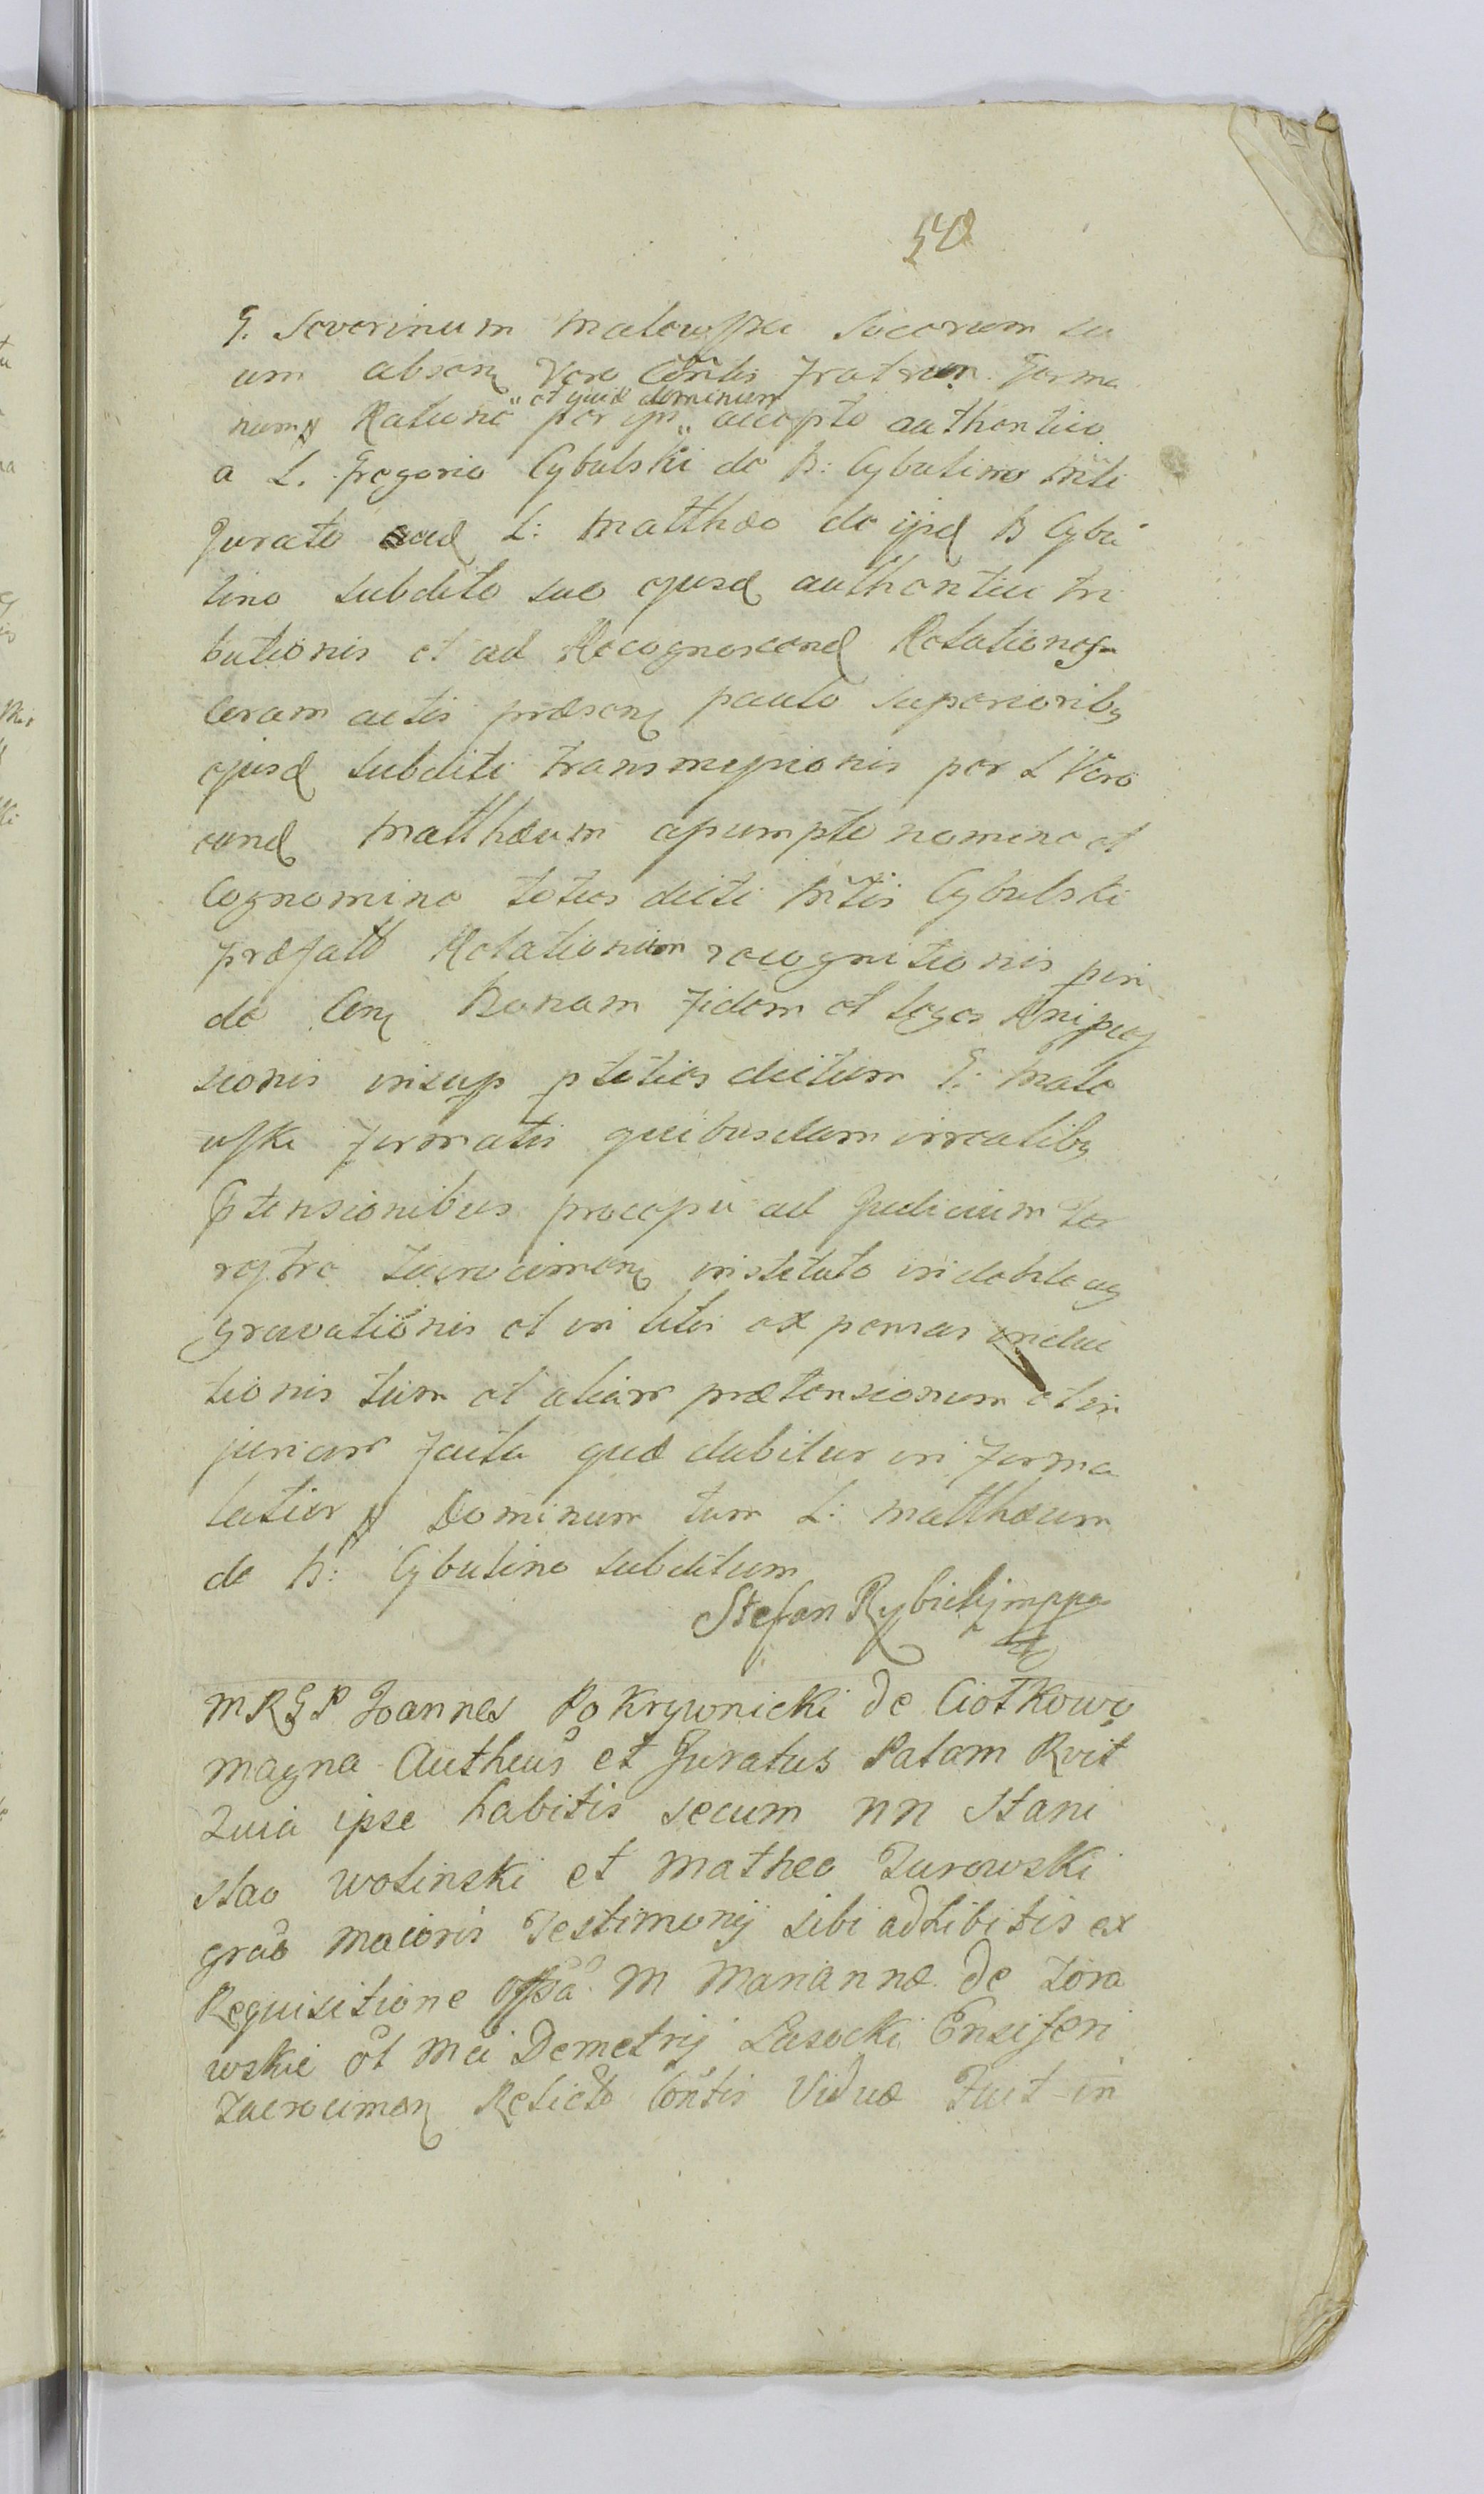 540
G. Severinum Malowski Socerum su
um absen Vero Contis Fratrem Germa
num Ratione " et quid dominum per ipm " accepto authentico
a L. Gregorio Cybulski de B: Cybulino Mti
Jurato aed L: Matthæo de ijsd B Cybu
lino subdito suo ejusd authentici tri
butionis et ad Recognoscend Relationes
Coram actis præsen paulo superiorib9
ejusd subditi transmissionis per L Vero
eund Matthæum assumpto nomine et
Cognomine toties dicti Mtis Cybulski
præfatt Relationum recognitionis
de Con Bonam Fidem et Leges
sionis insup p toties dictum G: Malo
wski Formatis quibusdam irrealib9
Ptensionibus processu ad Judicium Ter
restre Zacrocimen instituto indebite ag
gravationis et in litis expensas induc
tionis tum et aliar prætensionum et in
juriar facta quæ dabitur in forma
latior Dominum tum L: Matthæum
de B: Cybulino subditum
Stefan Rybickij mppa
M R G P Joannes Pokrywnicki de Ciotkowo
magna Autheus et Juratus Palam Rvit
Quia ipse habitis secum nn Stani
slao Wolinski et Matheo Zurowski
grao Maioris Testimonij sibi adhibitis ex
Requisitione M Mariannæ de Zora
wskie ot Mci Demetrij Lasocki Ensiferi
Zacrocimen Relictæ Contis Viduæ Fuit in